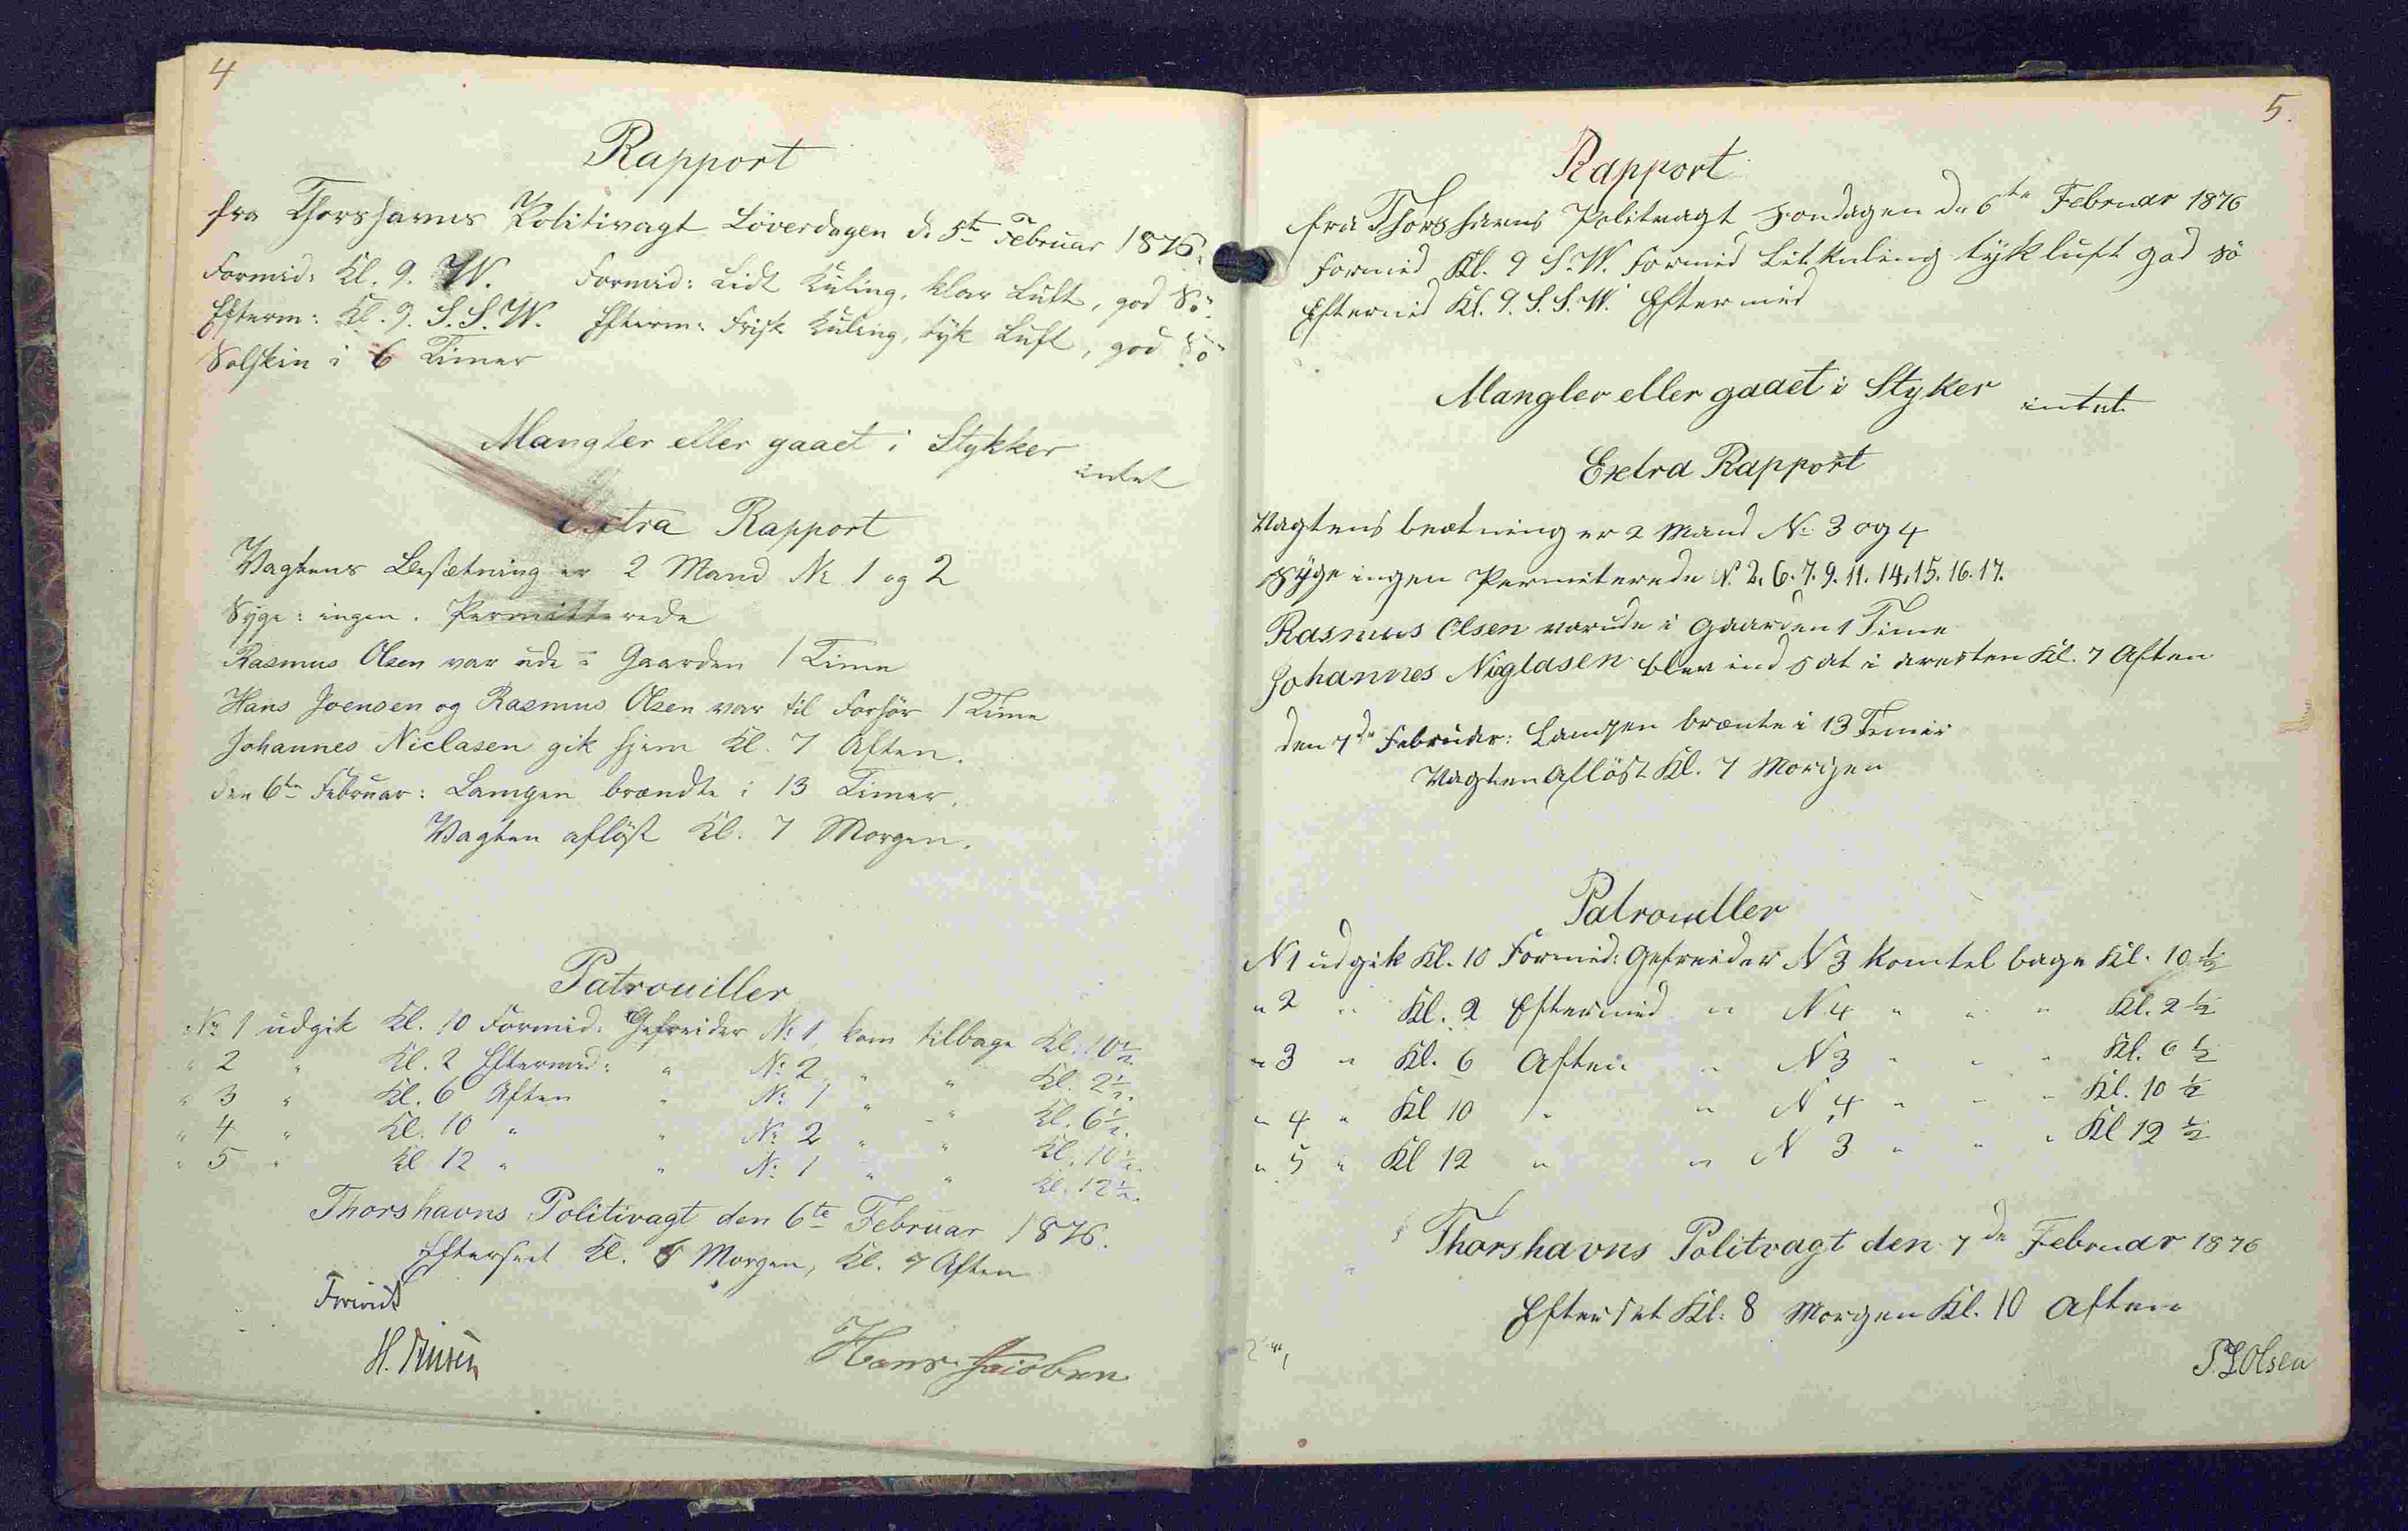 4
Rapport
fra Thorshavns Politivagt Löverdagen d. 5te Februar 1876.
Formid: Kl. 9. W. Formid: Lidt Kuling, klar Luft, god Sö.
Efterm: Kl. 9. S.S.W. Efterm: Frisk Kuling, tyk Luft, god Sö
Solskin i 6 Timer
Mangler eller gaaet i Stykker intet
Extra Rapport
Vagtens Besætning er 2 Mand No 1 og 2
Syge: ingen. Permitterede
Rasmus Olsen var ude i Gaarden 1 Time
Hans Joensen og Rasmus Olsen var til Forhör 1 Time
Johannes Niclasen gik hjem Kl. 7 Aften.
den 6te Februar: Lampen brændte i 13 Timer.
Vagten aflöst Kl. 7 Morgen.
Patrouiller
No 1 udgik Kl. 10 Formid: Gefreider No 1, kom tilbage Kl. 10½.
" 2 " Kl. 2 Eftermid: " No 2 " " Kl. 2½.
" 3 " Kl. 6 Aften " No 1 " " Kl. 6½.
" 4 " Kl. 10 " " No 2 " " Kl. 10½.
" 5 " Kl. 12 " " No 1 " " Kl. 12½.
Thorshavns Politivagt den 6te Februar 1876.
Efterseet Kl. 8 Morgen, Kl. 7 Aften
Hans Jacobsen
5.
Rapport
fra Thorshavns Politvagt Sondagen de 6te Februar 1876
Formid Kl. 9 S.W. Formid Litkuling tykluft god sö
Eftermid Kl. 9. S.S.W. Eftermid
Mangler eller gaaet i Styker intet
Extra Rapport
Vagtens beætning er 2 Mand No 3 og 4
Syge ingen Permiterede N. 2. 6. 7. 9. 11. 14. 15. 16. 17.
Rasmus Olsen var ude i Gaarden 1 Time
Johannes Niglasen blev ind sat i aresten Kl. 7 Aften
den 7de Februar: Lampen brænte i 13 Timer
Vagten Aflöst Kl. 7 Morgen
Patrouller
N 1 udgik Kl. 10 Formid: Gefreider N 3 kom tel bage Kl. 10 ½
" 2 " Kl. 2 Eftermid " N 4 " " " Kl. 2 ½
" 3 " Kl. 6 Aften " N 3 " " " Kl. 6 ½
" 4 " Kl 10 " " N 4 " " " Kl. 10 ½
" 5 " Kl 12 " " N 3 " " " Kl 12 ½
Thorshavns Politvagt den 7de Februar 1876
Efterset Kl: 8 Morgen Kl. 10 Aften
Olsen